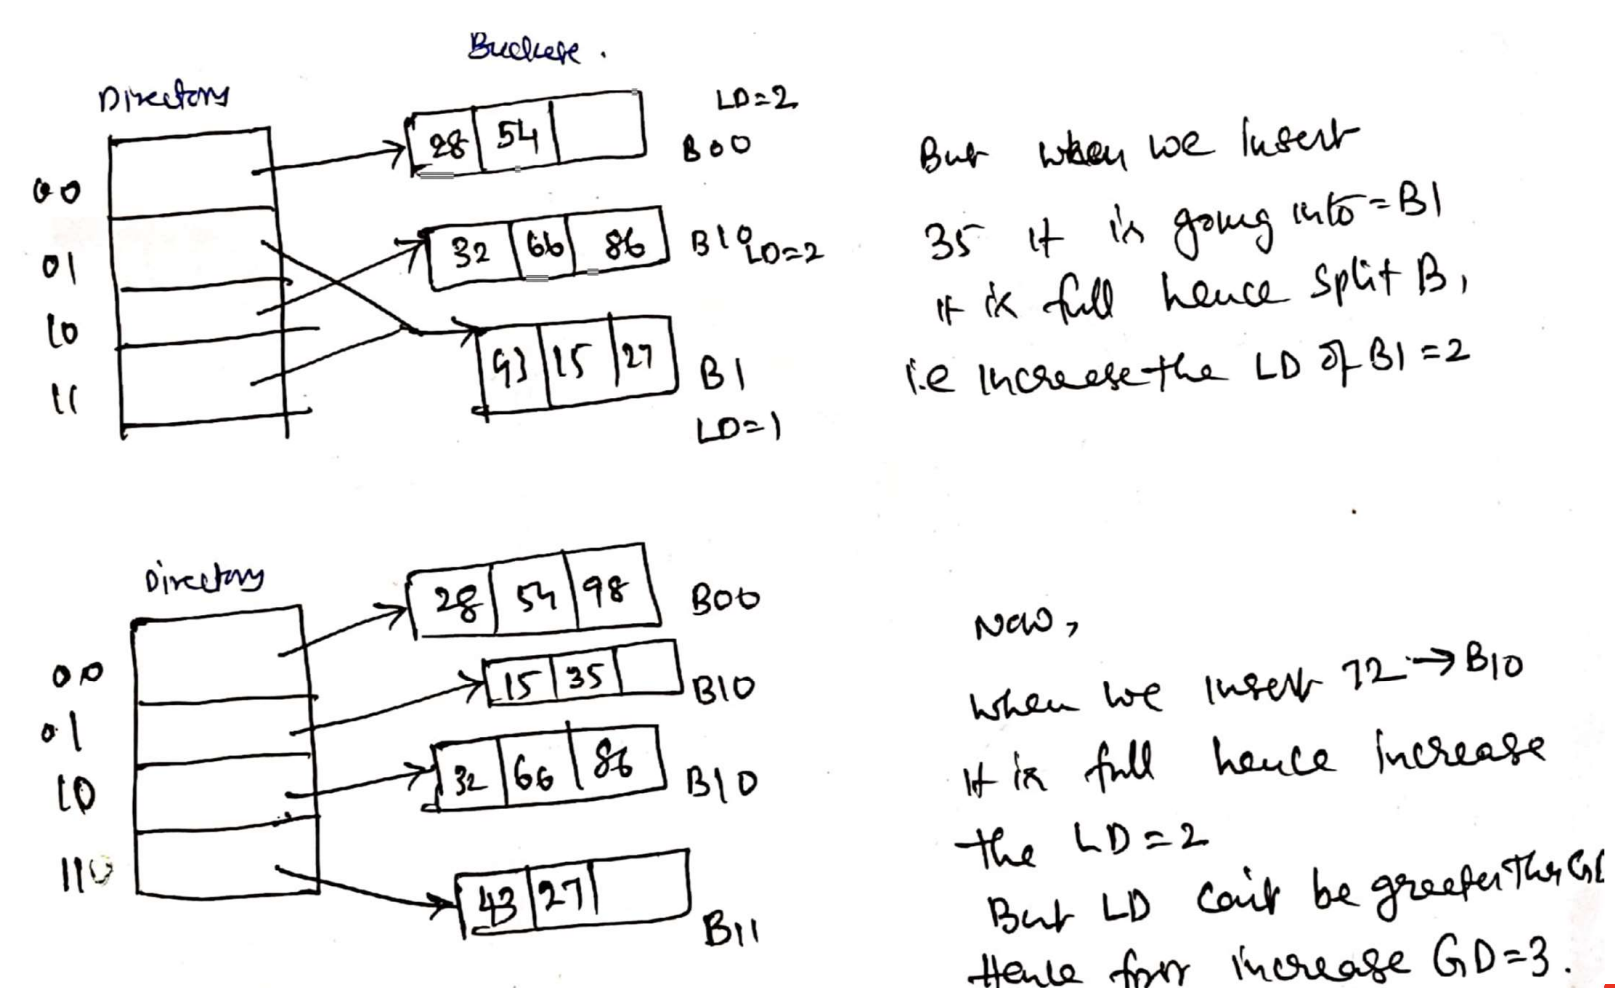 Directory
00
01
10
11
28 54
LD=2
B00
32 66 86
B10
LD=2
15 27
B1
LD=1
But when we Insert
35 it is going into = B1
It is full hence split B1
i.e increase the LD of B1 = 2
Directory
00
01
10
110
28 54 98
B00
15 35
B10
32 66 86
B10
43 27
B11
Now,
when we Insert 72 → B10
It is full hence increase
the LD = 2
But LD can't be greater
Hence increase GD=3.